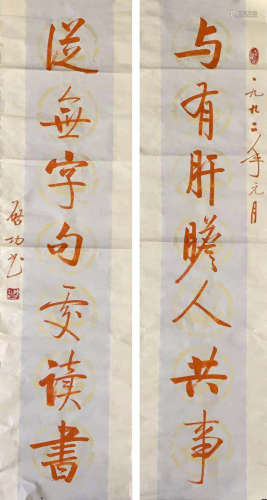 一九九二年元月
与有肝膽人共事
從無字句處读書
啟功书